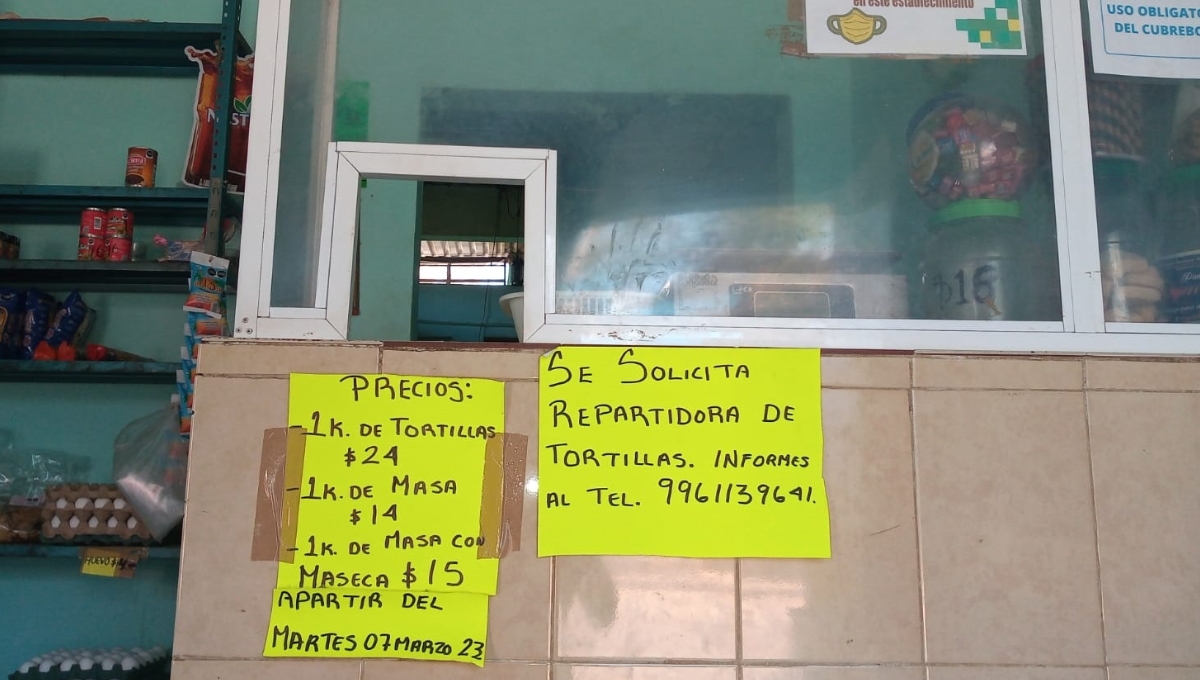 en este establecimiento
USO OBLIGATO
DEL CUBREBO
$16
PRECIOS:
-1K. DE TORTILLAS
$24
-1K. DE MASA
$14
-1K. DE MASA CON
MASECA $15
APARTIR DEL
MARTES 07 MARZO 23
SE SOLICITA
REPARTIDORA DE
TORTILLAS. INFORMES
AL TEL. 9961139641.